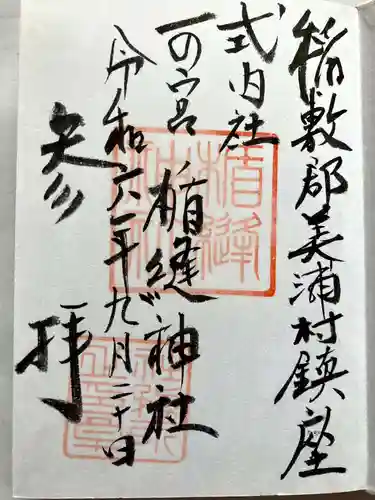 稲敷郡美浦村鎮座
式内社
一の宮 楯縫神社
令和六年九月二十日
参拝